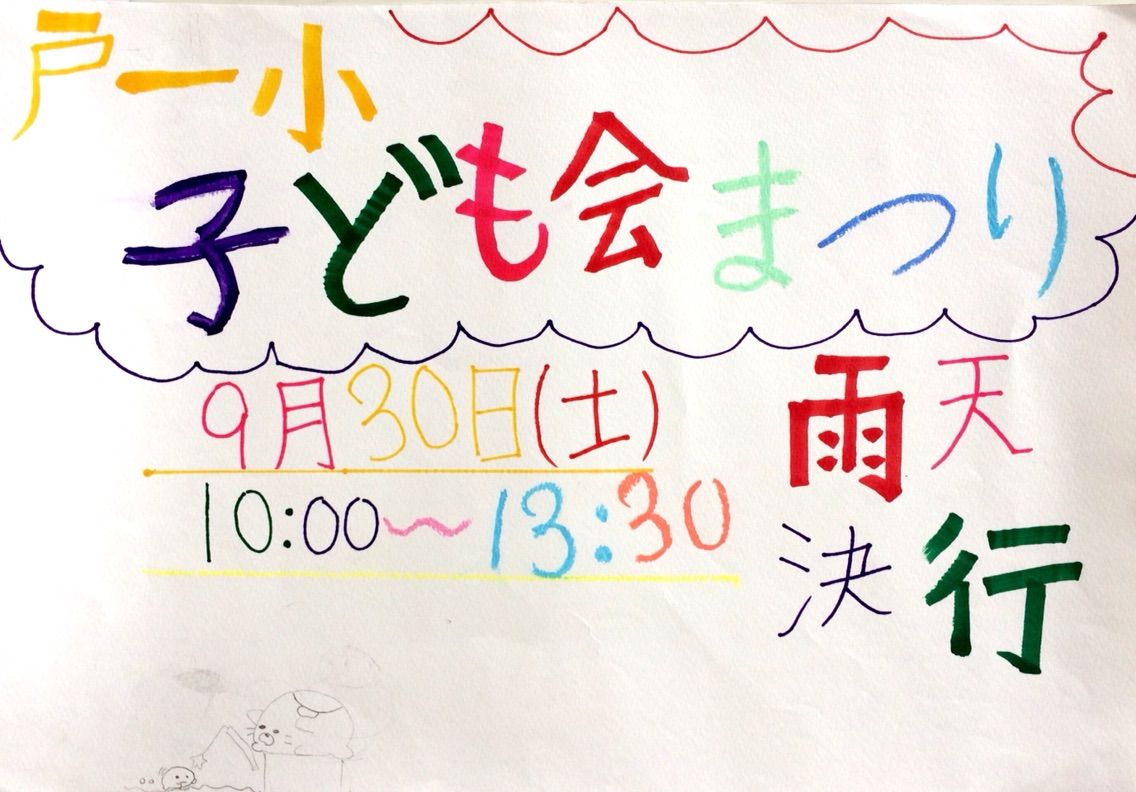 戸一小
子ども会まつり
9月30日(土)
10:00〜13:30
雨天
決行